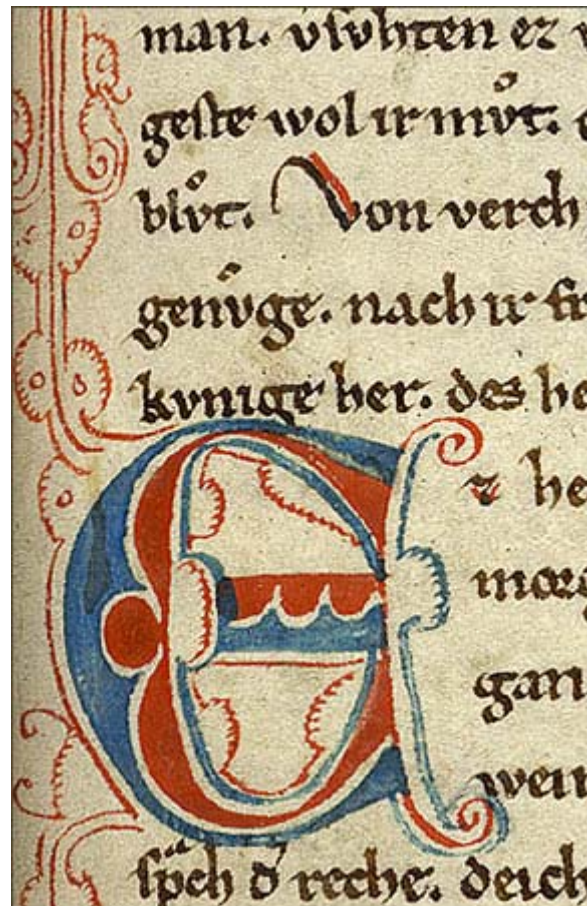 man. vſvhten ez
geſte wol ir mvͦt.
blvͦt. Von verch
genvͦge. nach ir
kvnige her. des he
E
r he
morg
gan
wein
ſpͣch dˀ reche. deich